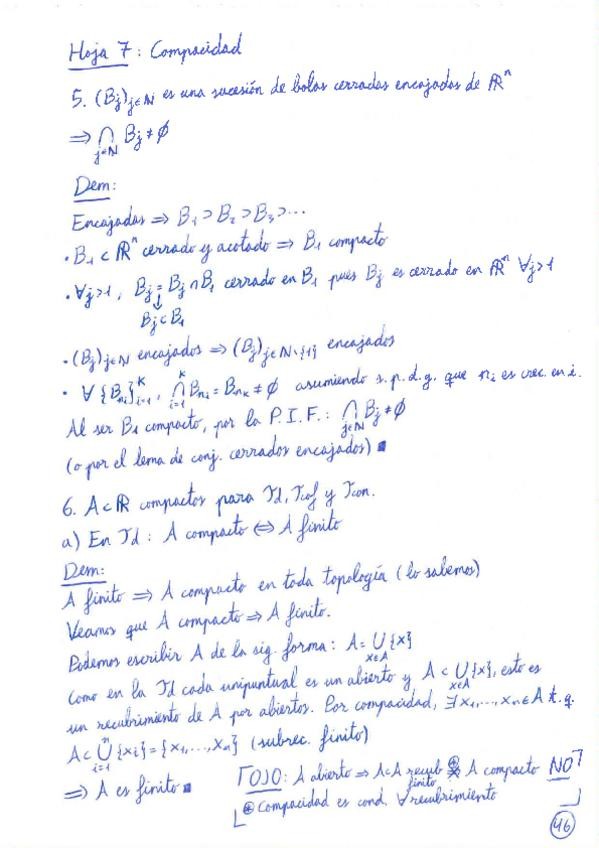 Hoja 7: Compacidad
5. (Bj)j∈ℕ es una sucesión de bolas cerradas encajadas de ℝⁿ
⟹ ⋂j∈ℕ Bj ≠ ∅
Dem:
Encajadas ⟹ B₁ ⊃ B₂ ⊃ B₃ ⊃ ...
• B₁ ⊂ ℝⁿ cerrado y acotado ⟹ B₁ compacto
• ∀j>1, Bj = Bj ∩ B₁ cerrado en B₁ pues Bj es cerrado en ℝⁿ ∀j>1
↓
Bj ⊂ B₁
• (Bj)j∈ℕ encajados ⟹ (Bj)j∈ℕ∖{1} encajados
• ∀ {Bnᵢ}ᵏᵢ₌₁, ⋂ᵏᵢ₌₁ Bnᵢ = Bnₖ ≠ ∅ asumiendo s.p.d.g. que nᵢ es crec. en i.
Al ser B₁ compacto, por la P.I.F.: ⋂j∈ℕ Bj ≠ ∅
(o por el lema de conj. cerrados encajados) ■
6. A ⊂ ℝ compactos para Td, Tcof y Tcon.
a) En Td: A compacto ⟺ A finito
Dem:
A finito ⟹ A compacto en toda topología (lo sabemos)
Veamos que A compacto ⟹ A finito.
Podemos escribir A de la sig. forma: A = ⋃x∈A {x}
Como en la Td cada unipuntual es un abierto y A ⊂ ⋃x∈A {x}, esto es
un recubrimiento de A por abiertos. Por compacidad, ∃x₁,...,xₙ ∈ A t.q.
A ⊂ ⋃ⁿᵢ₌₁ {xᵢ} = {x₁,...,xₙ} (subrec. finito)
⟹ A es finito ■
⌈OJO: A abierto ⟹ A⊂A recub finito ⊛⇏ A compacto NO⌉
⌊⊛ Compacidad es cond. ∀ recubrimiento⌋
46